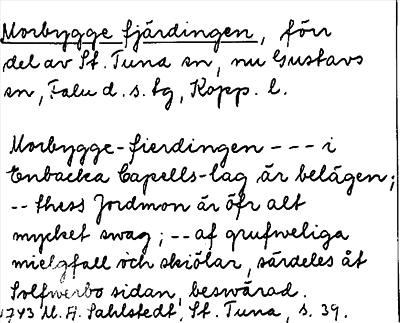 Morbygge fjärdingen, förr
del av St. Tuna sn, nu Gustavs
sn, Falu d. s. tg, Kopp. l.
Morbygge-fierdingen --- i
Enbacka Capells-lag är belägen;
-- thess Jordmon är öfr alt
mycket swag; -- af grufweliga
mielgfall och skiölar, särdeles åt
Solfwerbo sidan, beswärad.
1743 U. A. Sahlstedt, St. Tuna, s. 39.